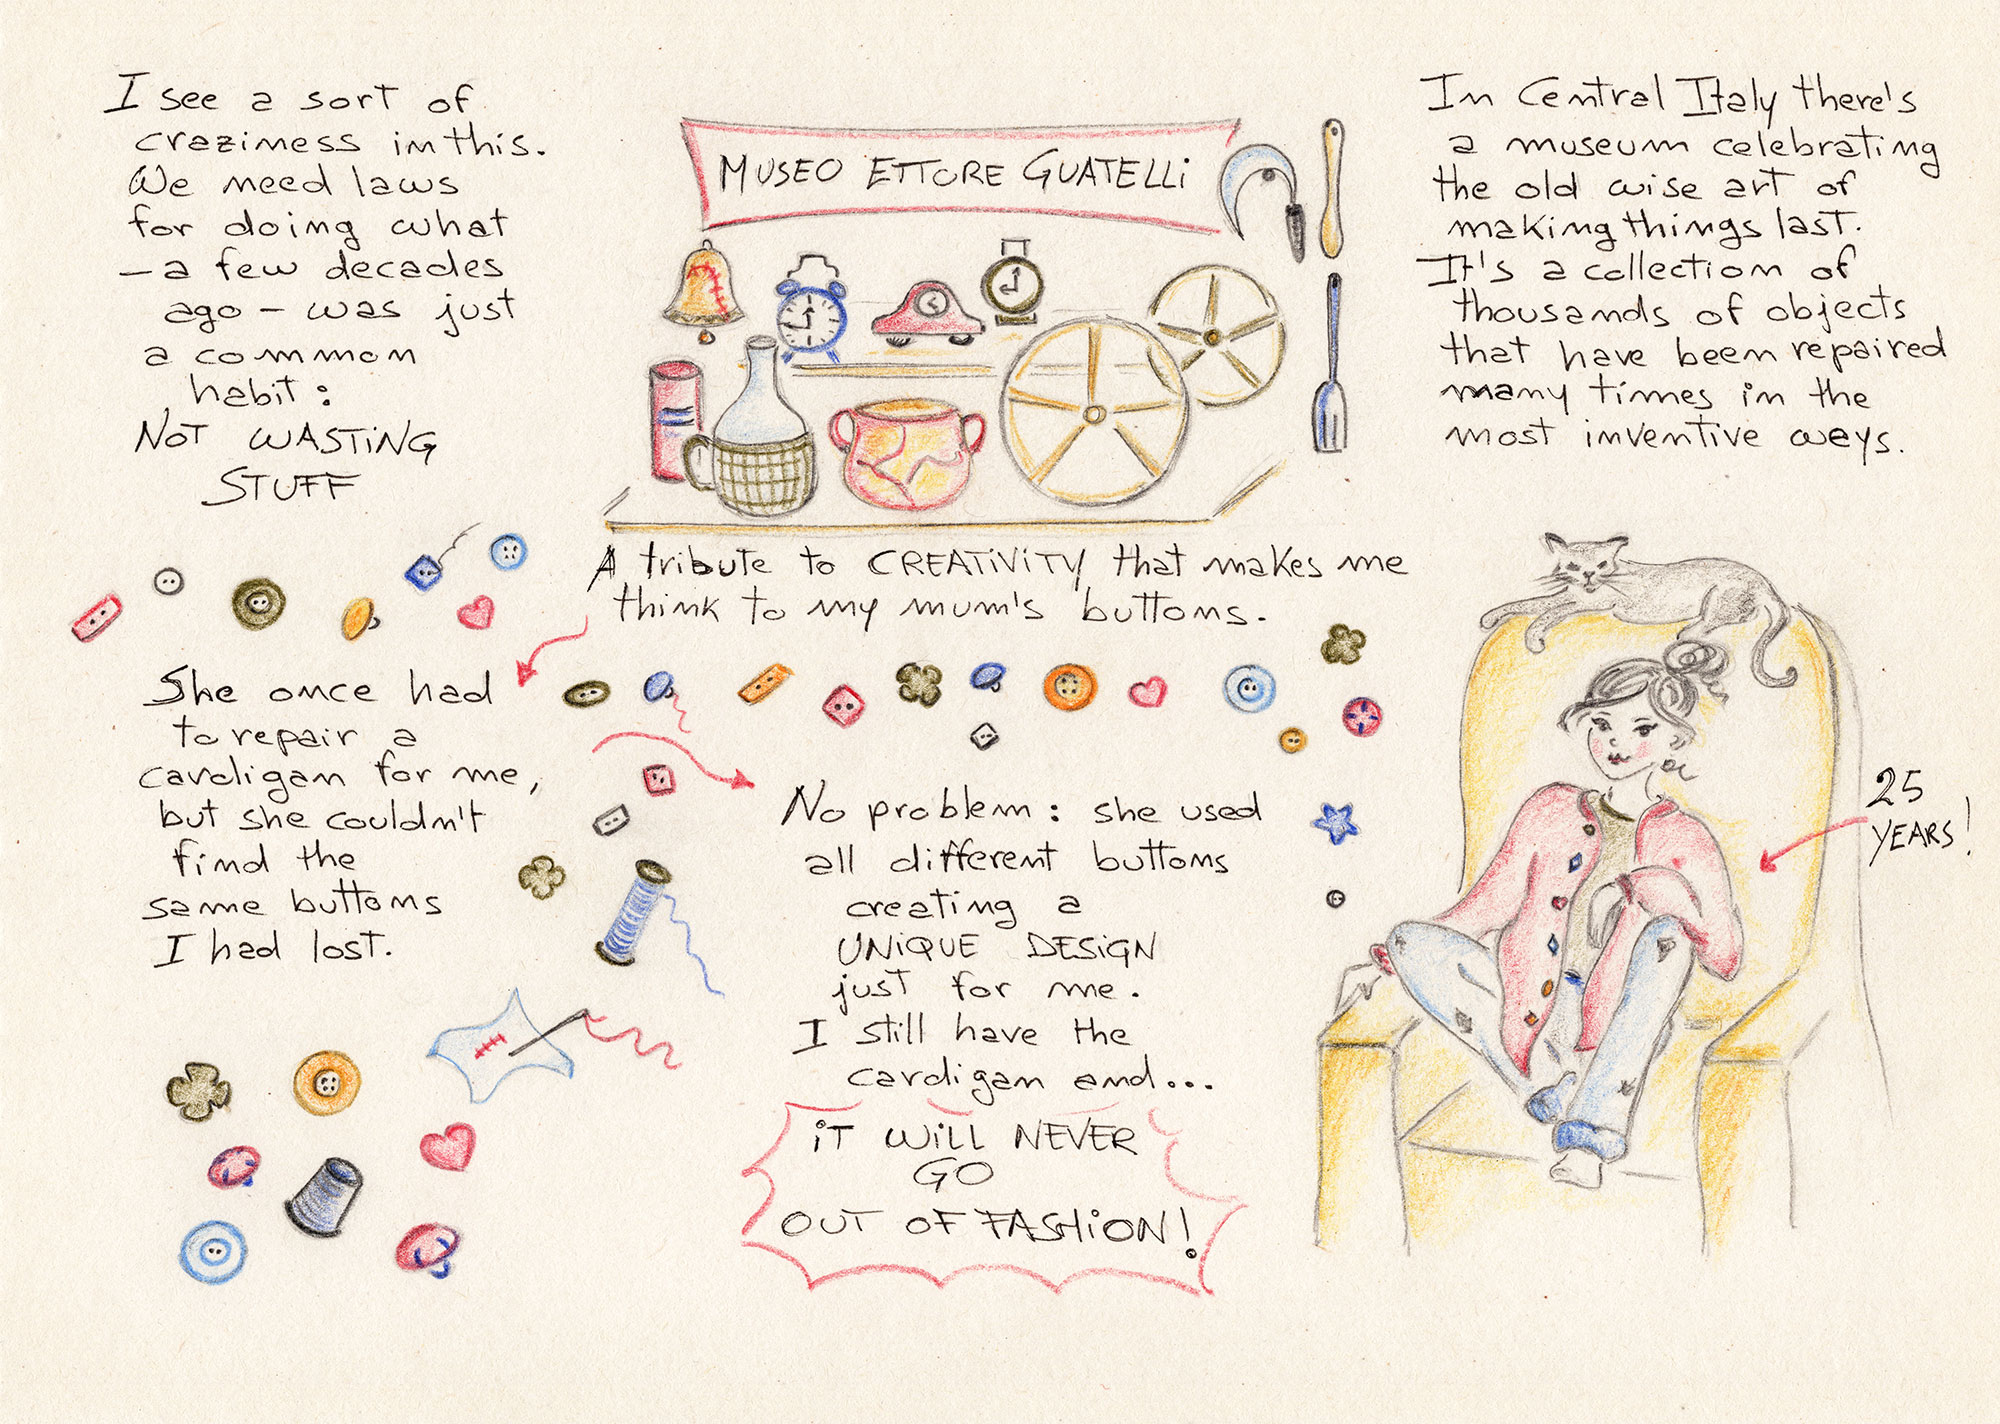 I see a sort of
craziness in this.
We need laws
for doing what
– a few decades
ago – was just
a common
habit:
NOT WASTING
STUFF
MUSEO ETTORE GUATELLI
In Central Italy there's
a museum celebrating
the old wise art of
making things last.
It's a collection of
thousands of objects
that have been repaired
many times in the
most inventive ways.
A tribute to CREATIVITY that makes me
think to my mum's buttons.
She once had
to repair a
cardigan for me,
but she couldn't
find the
same buttons
I had lost.
No problem: she used
all different buttons
creating a
UNIQUE DESIGN
just for me.
I still have the
cardigan and...
IT WILL NEVER
GO
OUT OF FASHION!
25
YEARS!